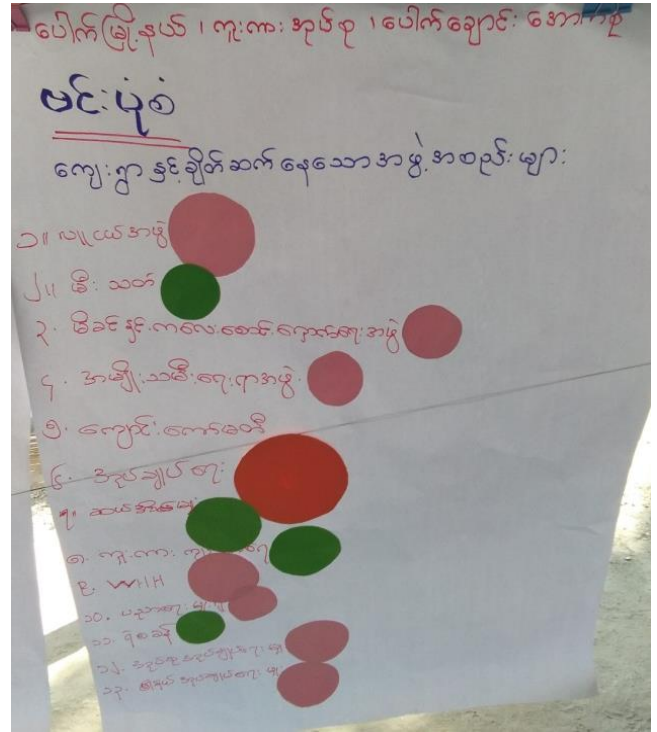 ပေါက်မြို့နယ် ၊ ကူးကားအုပ်စု ၊ ပေါက်ချောင်း အောက်စု
ဗင်းပုံစံ
ကျေးရွာ နှင့် ချိတ်ဆက် နေသော အဖွဲ့ အစည်း များ
၁။ လူငယ်အဖွဲ့
၂။ မီး သတ်
၃. မိခင် နှင့် ကလေး စောင့်ရှောက်ရေး အဖွဲ့
၄. အမျိုးသမီးရေးရာအဖွဲ့
၅. ကျောင်းကော်မတီ
၆. အုပ်ချုပ်ရေး
၇. ဆယ်အိမ်မှူး
၈. ကူးကား
၉. WHH
၁၀. ပညာရေး
၁၁. ရဲစခန်း
၁၂. အုပ်ချုပ်ရေး
၁၃. မြို့နယ် အုပ်ချုပ်ရေး မှူး